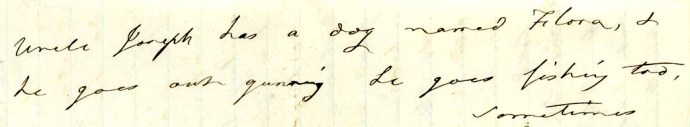 Uncle Joseph has a dog named Flora, &
he goes out gunning he goes fishing too,
sometimes